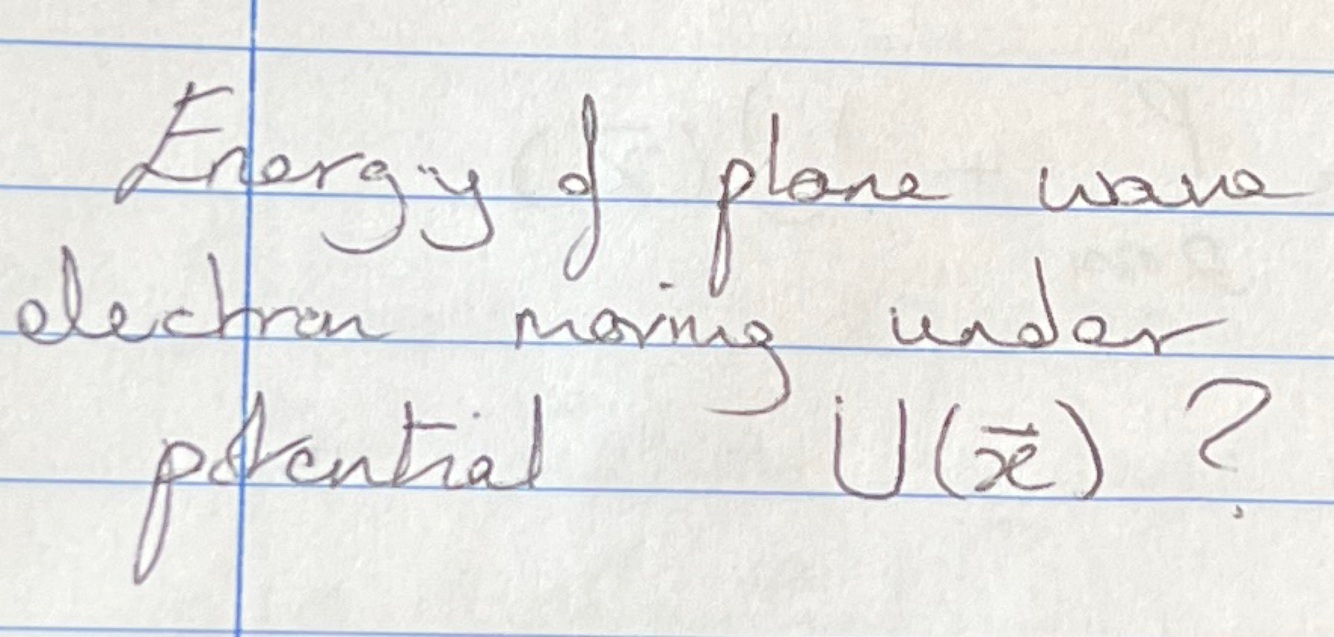 Energy of plane wave
electron moving under
potential U(x⃗) ?